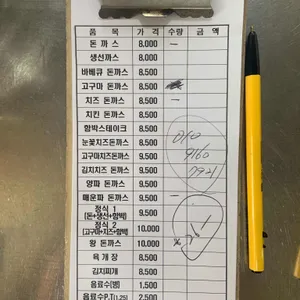 품 목 가 격 수량 금 액
돈 까 스 8.000 —
생선까스 8.000
바베큐 돈까스 8.500
고구마 돈까스 8.500
치즈 돈까스 8.500 —
치킨 돈까스 8.500
함박스테이크 8.500
눈꽃치즈돈까스 9.500
고구마치즈돈까스 9.500
김치치즈 돈까스 9.500
양파 돈까스 9.500
매운파 돈까스 9.500 —
정식 1 9.500
(돈+생선+함박)
정식 2 10.000
(고구마+치즈+함박)
왕 돈까스 10.000
육 개 장 8.500
김치찌개 8.500
음료수(병) 1.500
음료수P.T(1.25) 2.500
010
9160
7921